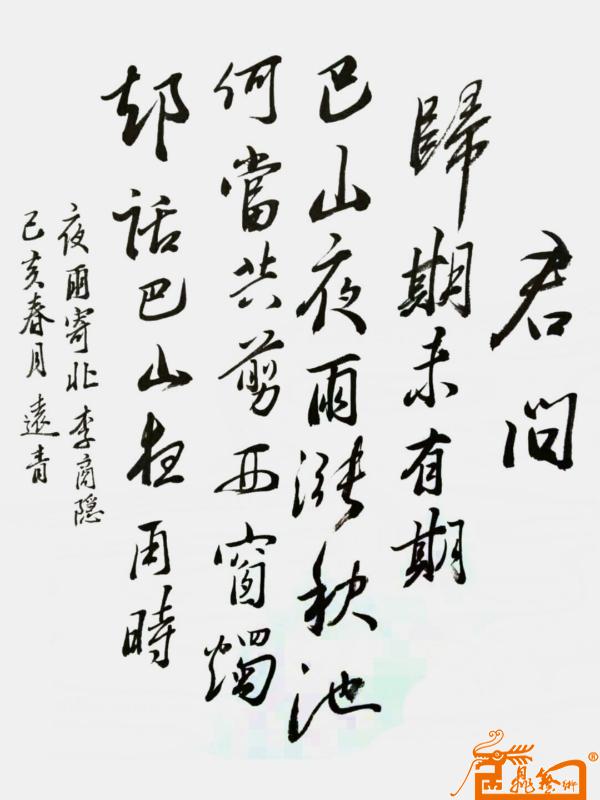 君問
歸期未有期
巴山夜雨漲秋池
何當共剪西窗燭
却話巴山夜雨時
夜雨寄北 李商隱
己亥春月 遠青